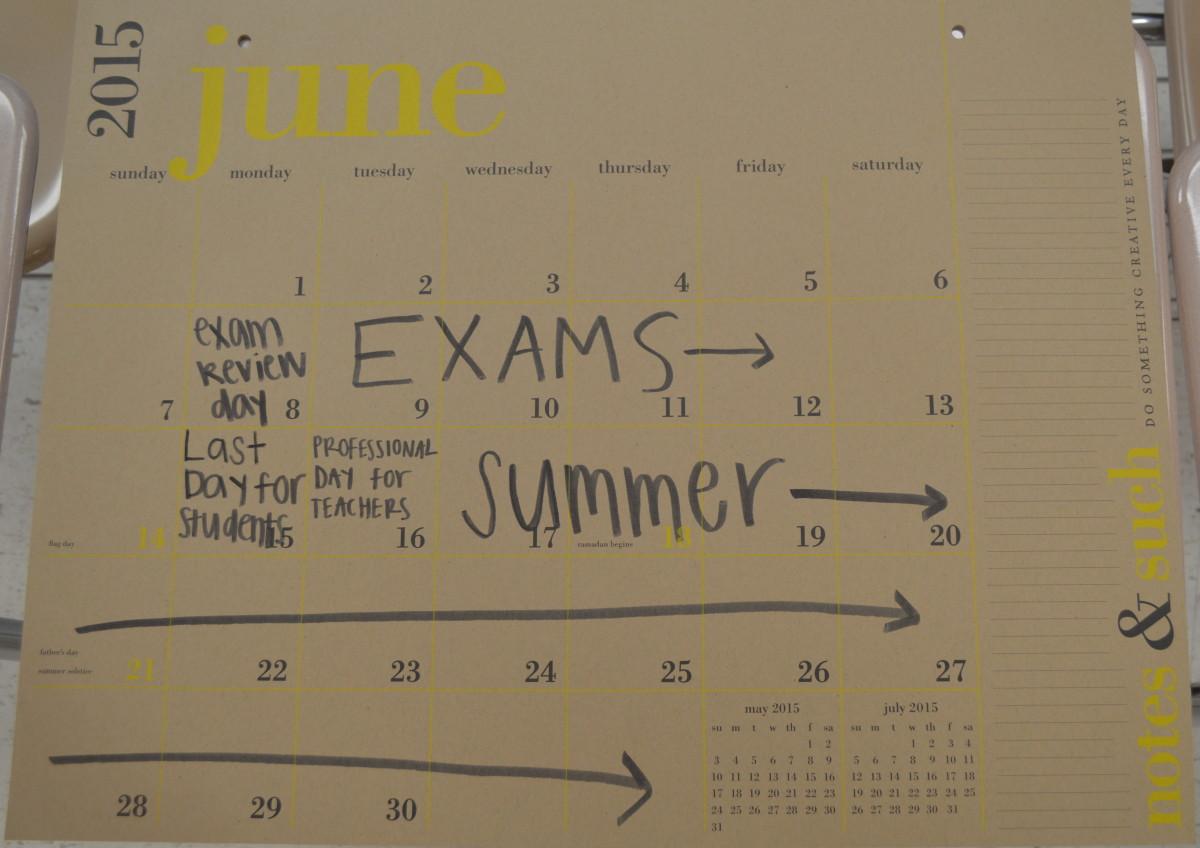 2015
june
sunday monday tuesday wednesday thursday friday saturday
1 2 3 4 5 6
exam
review
day
EXAMS
7 8 9 10 11 12 13
Last
Day for
students
PROFESSIONAL
DAY for
TEACHERS
Summer
flag day 14 15 16 17 ramadan begins 18 19 20
father's day
summer solstice 21 22 23 24 25 26 27
28 29 30
may 2015
su m t w th f sa
1 2
3 4 5 6 7 8 9
10 11 12 13 14 15 16
17 18 19 20 21 22 23
24 25 26 27 28 29 30
31
july 2015
su m t w th f sa
1 2 3 4
5 6 7 8 9 10 11
12 13 14 15 16 17 18
19 20 21 22 23 24 25
26 27 28 29 30 31
notes & such
DO SOMETHING CREATIVE EVERY DAY